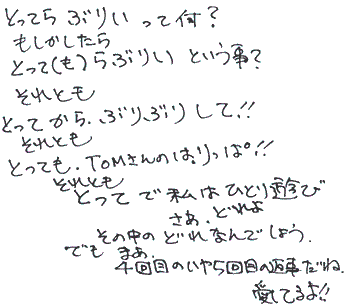 とってらぶりぃって何?
もしかしたら
とって(も)らぶりぃという事?
それとも
とってから、ぶりぶりして!!
それとも
とっても、TOMさんのはりっぱ!!
それとも
とってで私はひとり遊び
さあ、どれよ
その中のどれなんでしょう、
でもまあ、
4回目のいや5回目の返事だね、
愛してるよ!!